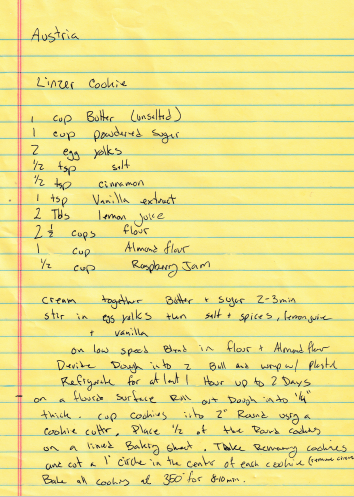 Austria
Linzer Cookie
1 cup Butter (unsalted)
1 cup powdered sugar
2 egg yolks
1/2 tsp salt
1/2 tsp cinnamon
1 tsp Vanilla extract
2 Tbls lemon juice
2 1/2 cups flour
1 cup Almond flour
1/2 cup Raspberry Jam
cream together Butter + Sugar 2-3 min
stir in egg yolks then salt + spices, lemon juice
+ vanilla
on low speed Blend in flour + Almond flour
Devide Dough into 2 Ball and wrap w/ plastic
Refrigate for at least 1 Hour up to 2 Days
on a floured surface Roll out Dough into 1/4"
thick. cup cookies into 2" Round using a
cookie cutter. Place 1/2 of the Round cookies
on a lined Baking sheet. Take Remaing cookies
and cut a 1" circle in the center of each cookie (remove circle)
Bake all cookies at 350° for 8-10 min.